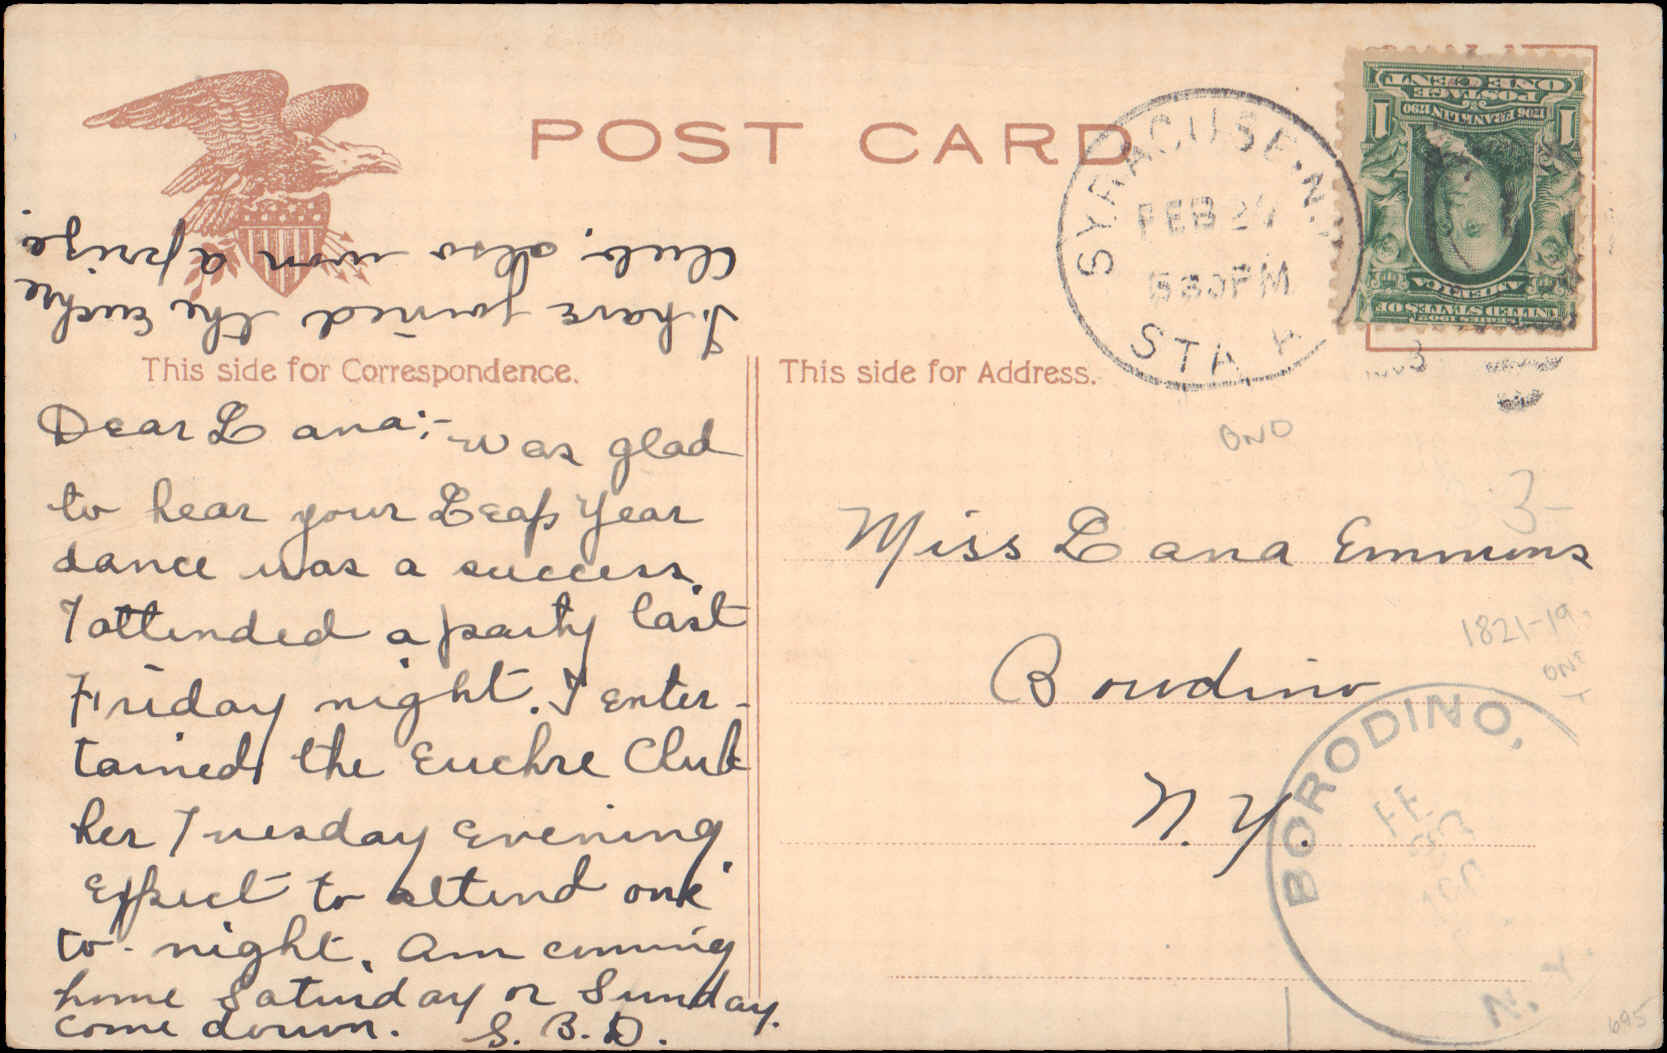 POST CARD
SYRACUSE, N.Y.
FEB 27
530PM
STA. A
ONE CENT
POSTAGE
1706 FRANKLIN 1790
1 1
AMERICA
UNITED STATES OF
SERIES 1902
This side for Correspondence.
Dear Lana:- was glad
to hear your Leap Year
dance was a success.
I attended a party last
Friday night. I enter-
tained the Euchre Club
her Tuesday evening.
Expect to attend one
to-night. Am coming
home Saturday or Sunday.
come down. S. B. D.
I have joined the Euchre
Club, also won a prize.
This side for Address.
BND
3-
Miss Lana Emmons
Borodino
N.Y.
1821-19
BORODINO,
FE
N.Y.
695